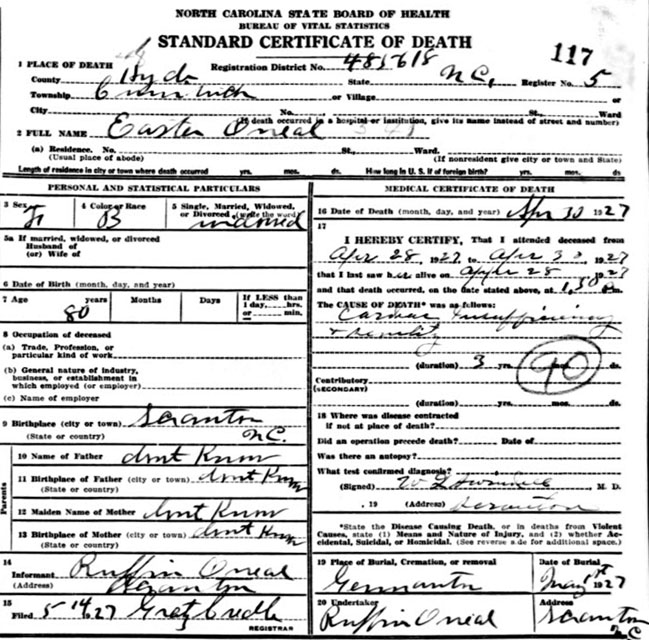 NORTH CAROLINA STATE BOARD OF HEALTH
BUREAU OF VITAL STATISTICS
STANDARD CERTIFICATE OF DEATH
117
1 PLACE OF DEATH
Registration District No. 485618
County Hyde State N.C. Register No. 5
Township or Village or
City No. St., Ward
(If death occurred in a hospital or institution, give its name instead of street and number)
2 FULL NAME Easter Oneal
(a) Residence. No. St., Ward.
(Usual place of abode) (If nonresident give city or town and State)
Length of residence in city or town where death occurred yrs. mos. ds. How long in U. S. if of foreign birth? yrs. mos. ds.
PERSONAL AND STATISTICAL PARTICULARS
3 Sex F
4 Color or Race B
5 Single, Married, Widowed, or Divorced (write the word) widowed
5a If married, widowed, or divorced
Husband of
(or) Wife of
6 Date of Birth (month, day, and year)
7 Age 80 years Months Days If LESS than 1 day, hrs. or min.
8 Occupation of deceased
(a) Trade, Profession, or
particular kind of work
(b) General nature of industry,
business, or establishment in
which employed (or employer)
(c) Name of employer
9 Birthplace (city or town) Scranton
(State or country) N.C.
Parents
10 Name of Father dont Know
11 Birthplace of Father (city or town) dont Know
(State or country)
12 Maiden Name of Mother dont Know
13 Birthplace of Mother (city or town) dont Know
(State or country)
14
Informant Ruffin Oneal
(Address) Scranton
15
Filed 5-14-27 Gratz Credle
REGISTRAR
MEDICAL CERTIFICATE OF DEATH
16 Date of Death (month, day, and year) Apr 30 1927
17
I HEREBY CERTIFY, That I attended deceased from
Apr 28, 1927, to Apr 30, 1927
that I last saw her alive on April 28 1927
and that death occurred, on the date stated above, at 1,30 Pm.
The CAUSE OF DEATH* was as follows:
Cardiac Insufficiency
& senility
90
(duration) 3 yrs. mos. ds.
Contributory
(SECONDARY)
(duration) yrs. mos. ds.
18 Where was disease contracted
if not at place of death?
Did an operation precede death? Date of
Was there an autopsy?
What test confirmed diagnosis?
(Signed) M. D.
, 19 (Address) Scranton
*State the Disease Causing Death, or in deaths from Violent
Causes, state (1) Means and Nature of Injury, and (2) whether Ac-
cidental, Suicidal, or Homicidal. (See reverse side for additional space.)
19 Place of Burial, Cremation, or removal
Date of Burial
May 1st 1927
20 Undertaker
Ruffin Oneal
Address
Scranton
N C